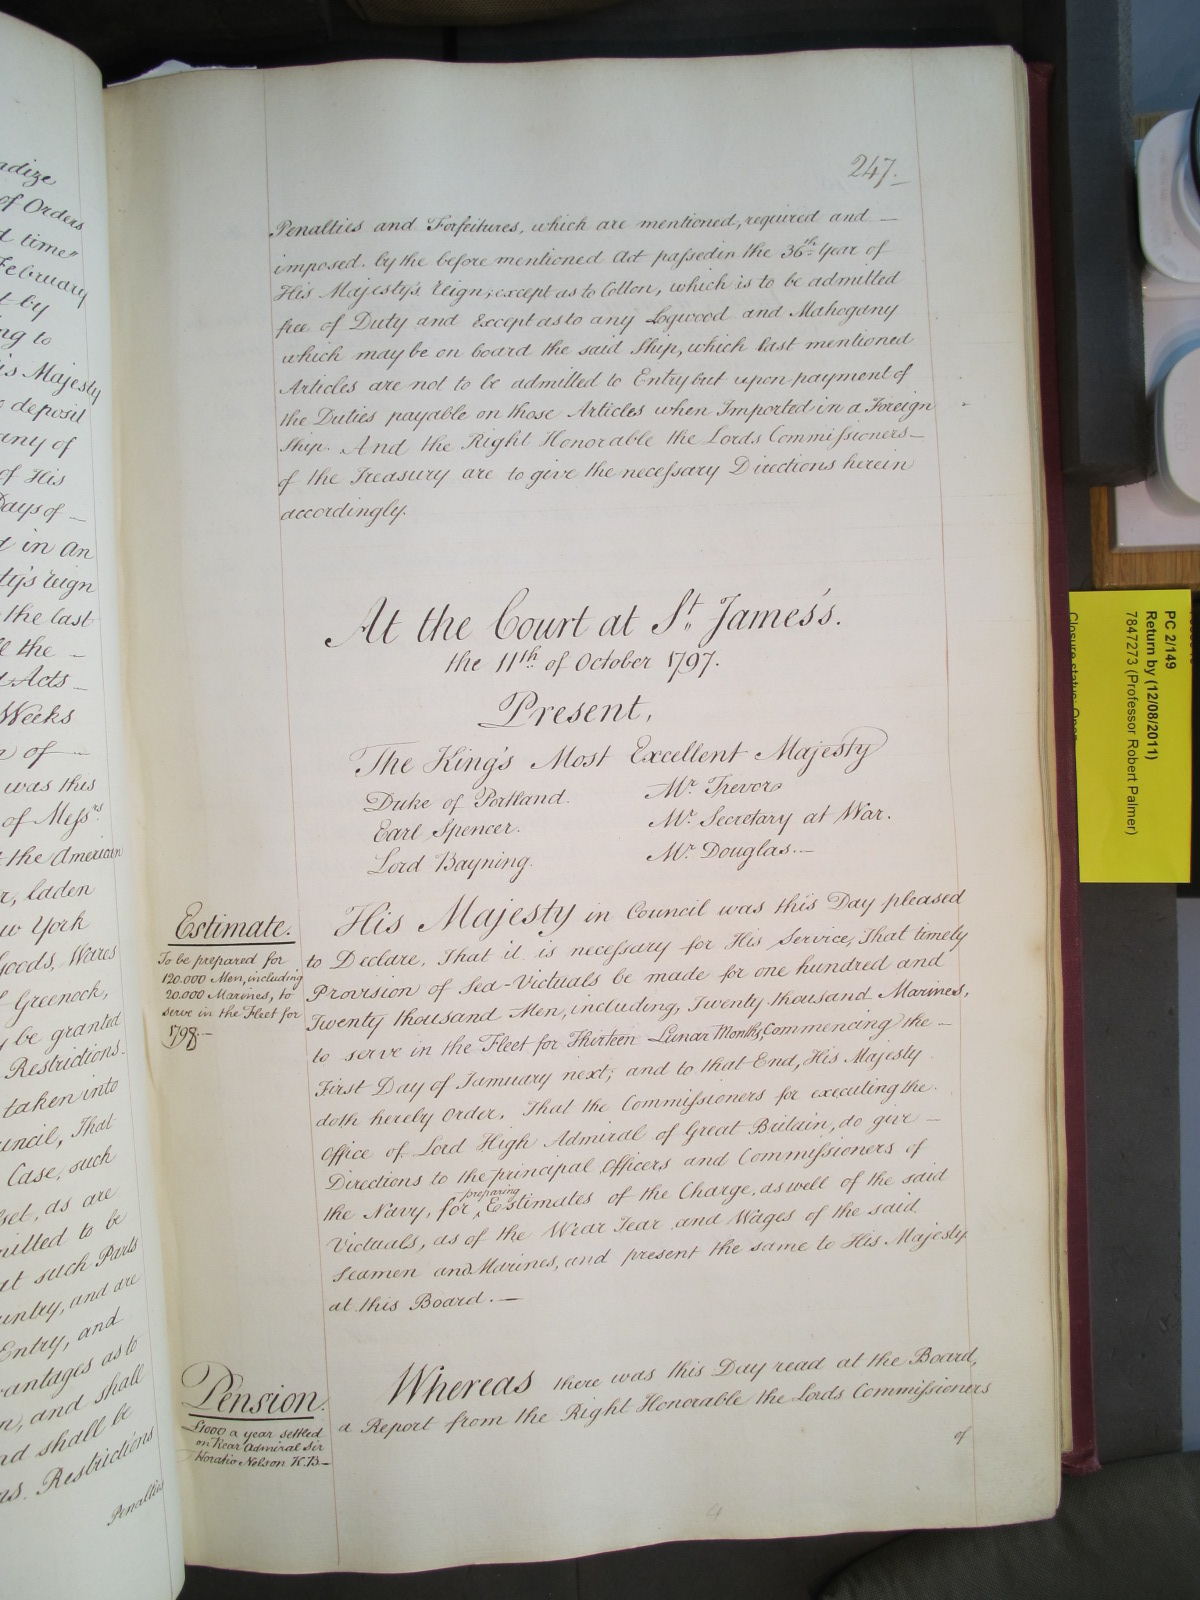 adize
of Orders
d time
February
t by
ng to
is Majesty
deposit
any of
of His
Days of
d in An
ty's reign
the last
the
Acts
Weeks
of
was this
of Mess.rs
the American
laden
w York
Goods, Wares
Greenock,
y be granted
Restrictions
taken into
uncil, That
Case, such
set, as are
mitted to be
at such Parts
untry, and are
Entry, and
vantages as to
n, and shall
nd shall be
ns. Restrictions
Penalties
247.
Penalties and Forfeitures, which are mentioned, required and —
imposed. by the before mentioned Act passed in the 36th Year of
His Majesty's reign; except as to Cotton, which is to be admitted
free of Duty and Except as to any Logwood and Mahogany
which may be on board the said Ship, which last mentioned
Articles are not to be admitted to Entry but upon payment of
the Duties payable on those Articles when Imported in a Foreign
Ship. And the Right Honorable the Lords Commissioners —
of the Treasury are to give the necessary Directions herein
accordingly.
At the Court at St. James's.
the 11th of October 1797.
Present,
The King's Most Excellent Majesty
Duke of Portland. Mr. Trevor
Earl Spencer. Mr. Secretary at War.
Lord Bayning. Mr. Douglas. —
Estimate.
To be prepared for
120.000 Men, including
20.000 Marines, to
serve in the Fleet for
1798. —
His Majesty in Council was this Day pleased
to Declare, That it is necessary for His Service, That timely
Provision of Sea-Victuals be made for one hundred and
Twenty thousand Men, including, Twenty thousand Marines,
to serve in the Fleet for Thirteen Lunar Months, Commencing the —
First Day of January next; and to that End, His Majesty
doth hereby Order, That the Commissioners for executing the
Office of Lord High Admiral of Great Britain, do give —
Directions to the principal Officers and Commissioners of
the Navy, for preparing Estimates of the Charge, as well of the said
Victuals, as of the Wear Tear and Wages of the said
Seamen and Marines, and present the same to His Majesty
at this Board. —
Pension.
£1000 a year settled
on Rear Admiral Sir
Horatio Nelson K.B —
Whereas there was this Day read at the Board,
a Report from the Right Honorable the Lords Commissioners
of
PC 2/149
Return by (12/08/2011)
7847273 (Professor Robert Palmer)
Closure status: Open